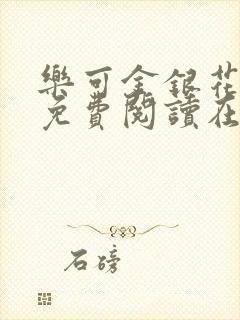 樂可金銀花
免費閱讀在
石磅